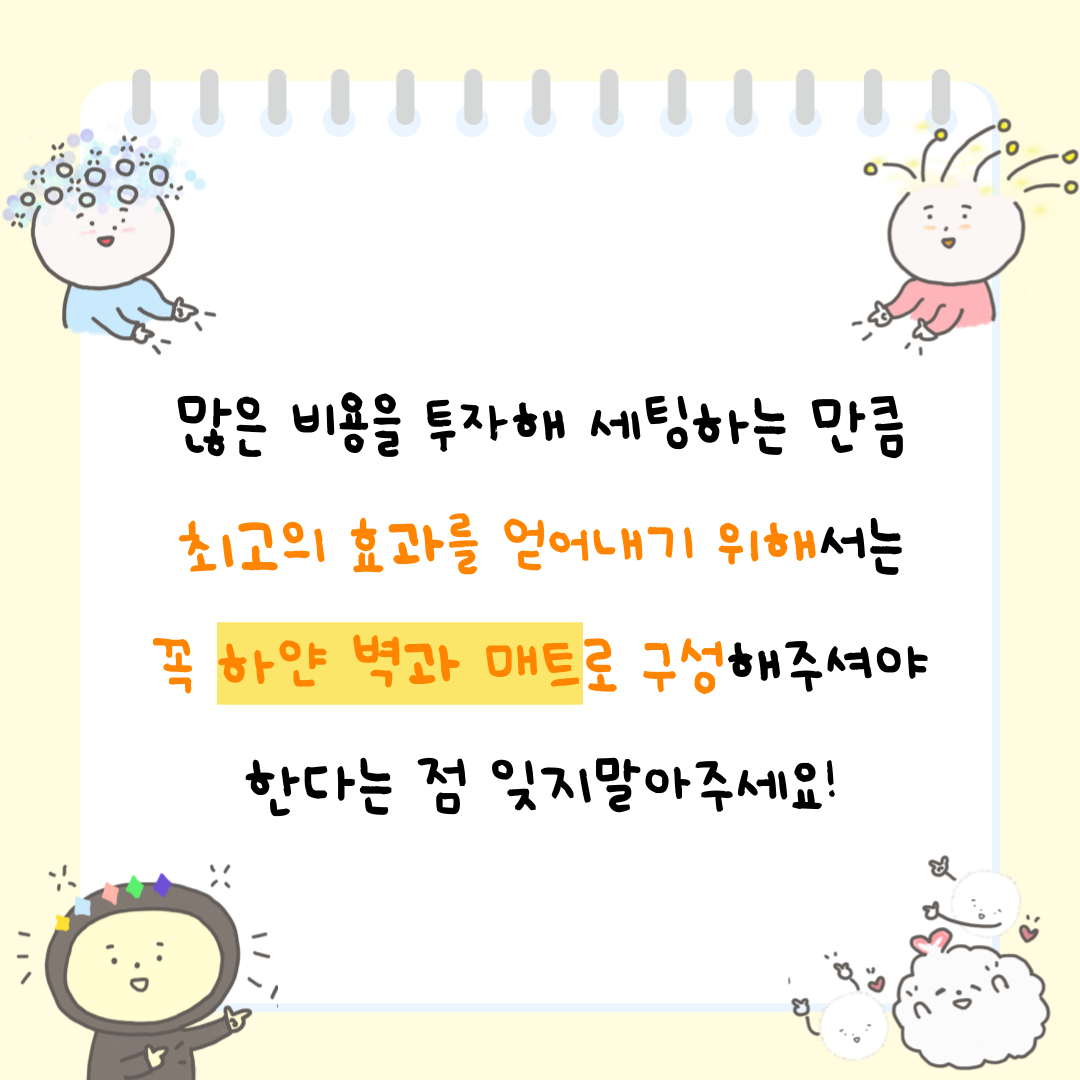 많은 비용을 투자해 세팅하는 만큼
최고의 효과를 얻어내기 위해서는
꼭 하얀 벽과 매트로 구성해주셔야
한다는 점 잊지말아주세요!